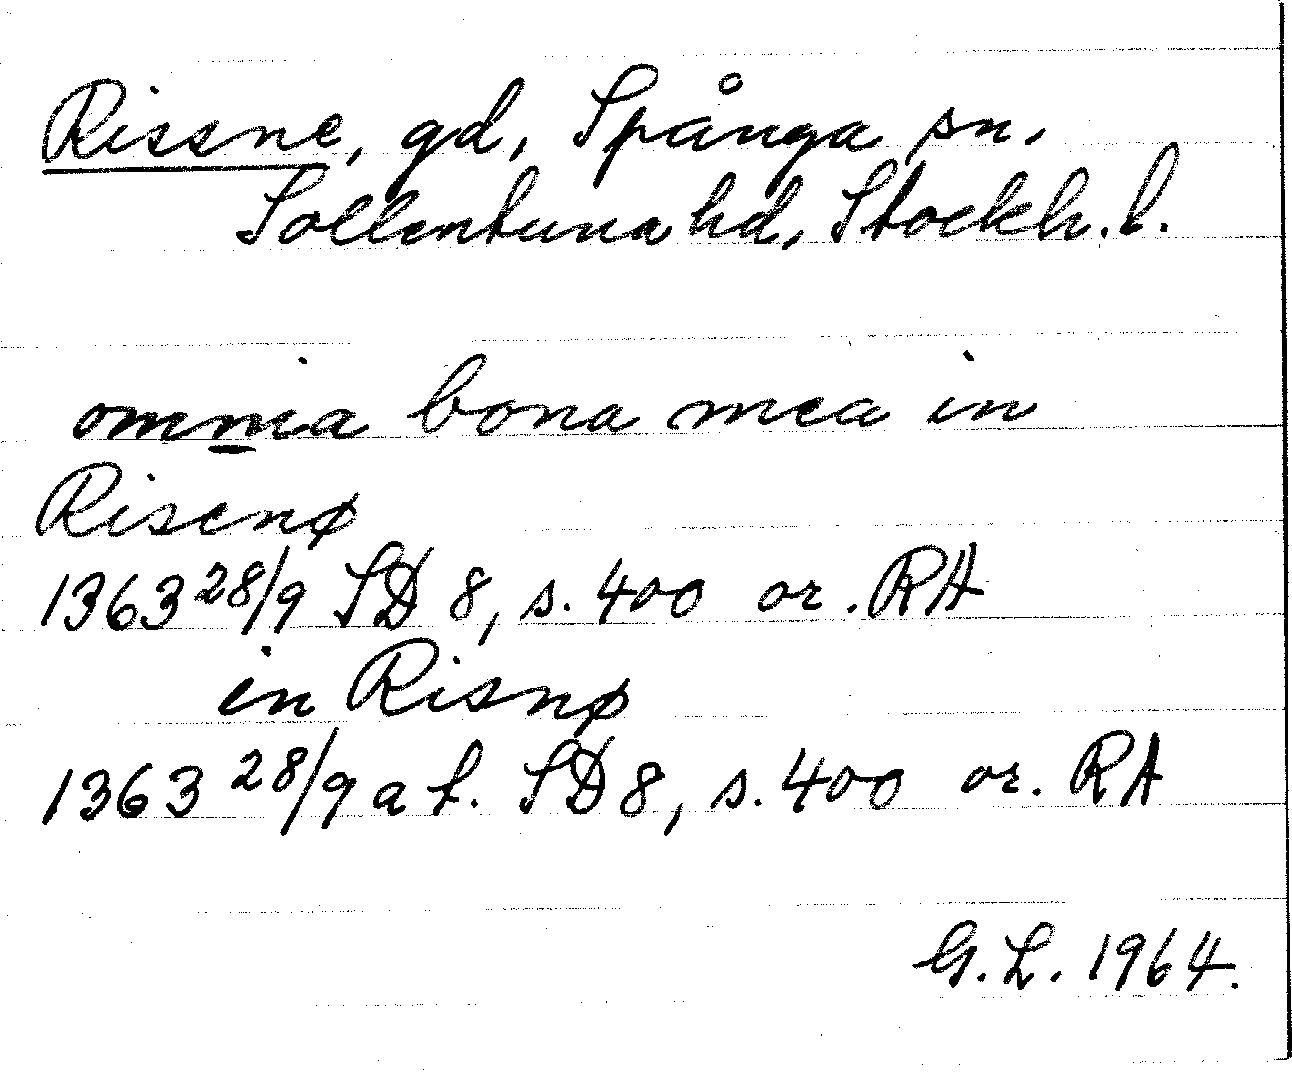 Rissne, gd, Spånga sn,
Sollentuna hd, Stockh. l.
omnia bona mea in
Risenø
1363 28/9 SD 8, s. 400 or. RA
in Risnø
1363 28/9 a t. SD 8, s. 400 or. RA
G. L. 1964.